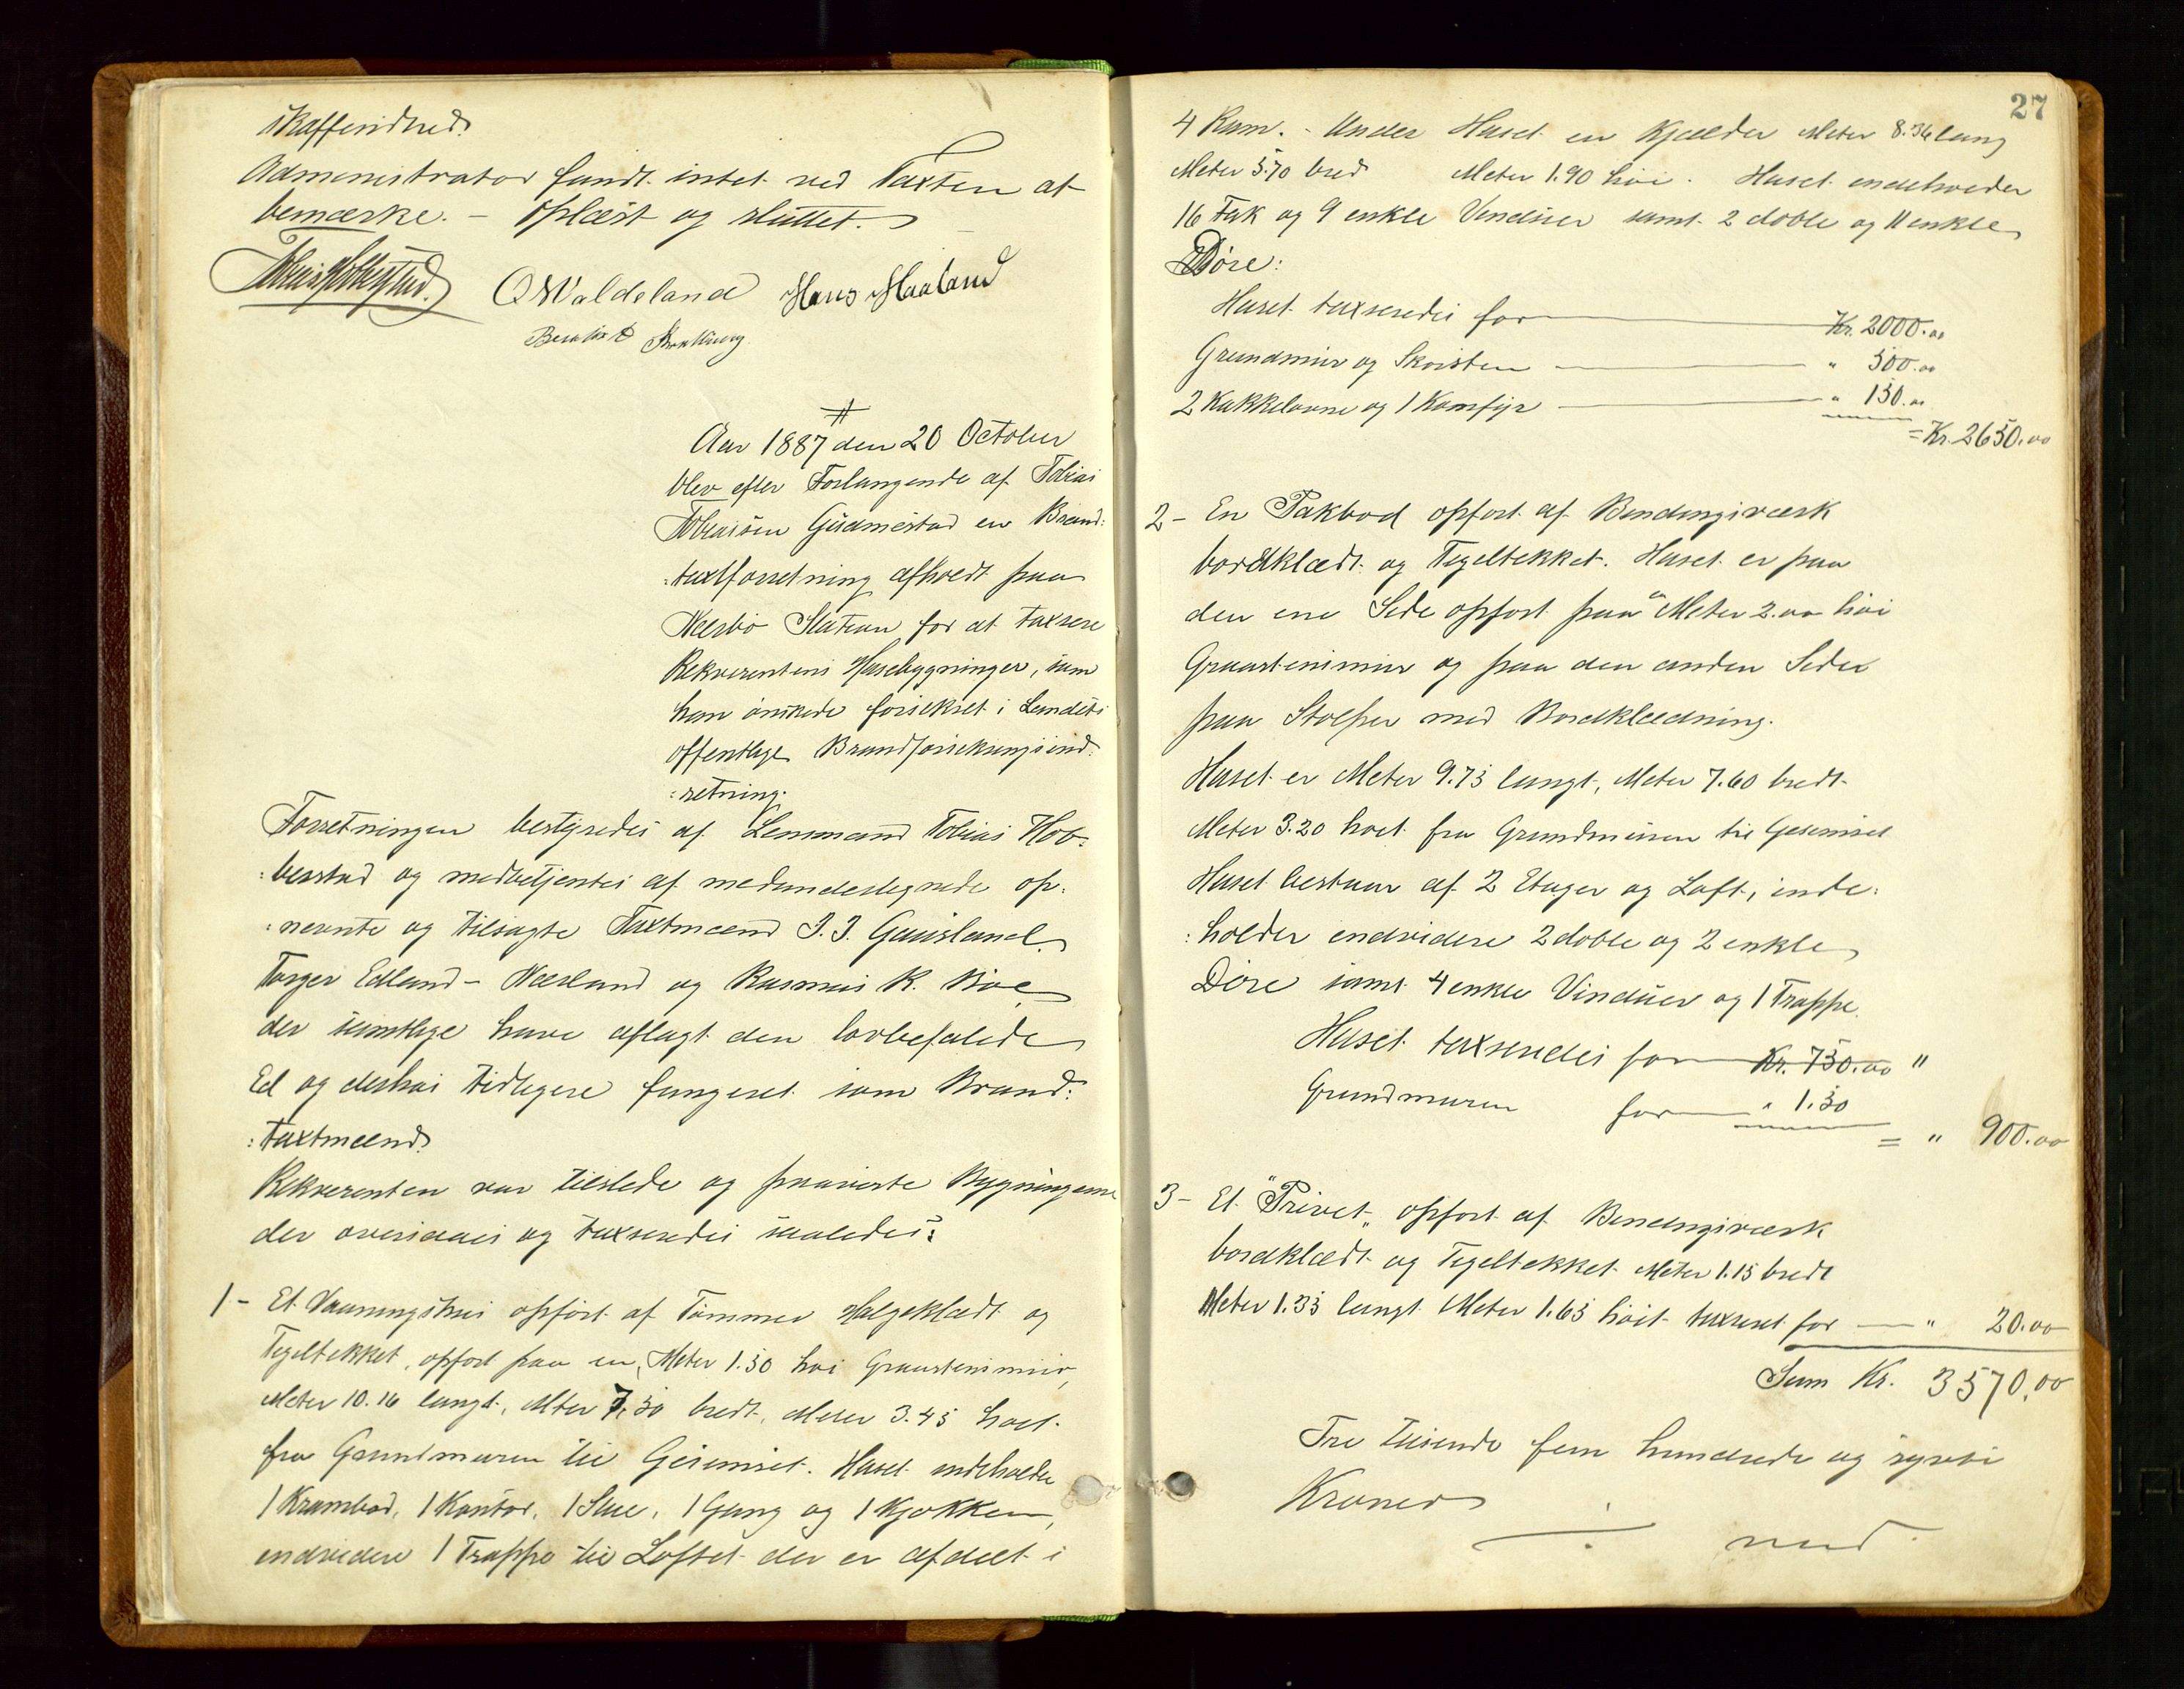 skaffenhed.
Administrator fandt intet ved Taxten at
bemærke. — Oplæst og sluttet.
Tobias Hobbestad. O Waldeland Hans Maaland
Aar 1887 den 20 October
blev efter Forlangende af Tobias
Tobiassen Gudmestad en Brand:
:taxtforretning afholdt paa
Nærbø Station for at taxsere
Rekverentens Husebygninger, som
han ønskede forsikret i Landets
offentlige Brandforsikringsind:
:retning.
Forretningen bestyredes af Lensmand Tobias Hob:
:berstad og medbetjentes af medunderskegnede op:
:nevnte og tilsagte Taxtmænd I. I. Gausland
Torger Edland - Nærland og Rasmus K. Bøe
der samtlige have aflagt den lovbefalede
Ed og desshos tidligere fungeret som Brand:
:taxtmænd.
Rekverenten var tilstede og paaviste Bygningerne
der overs aaes og taxseredes saaledes:
1 - Et Vaaningshus opført af Tømmer Halgeklædt og
Tegeltekket, opført paa en, Meter 1.50 høi Graastensmur,
Meter 10.16 langt, Meter 7.50 bredt, Meter 3.45 høit
fra Grundmuren til Gesimset. Huset indeholder
1 Krambod, 1 Kontor, 1 Stue, 1 Gang og 1 Kjøkken,
endvidere 1 Trappe til Loftet der er afdelt i
27
4 Rum. - Under Huset en Kjælder Meter 8.36 lang
Meter 5.70 bred Meter 1.90 høi. Huset indeholder
16 Fak og 9 enkle Vinduer samt 2 doble og 11 enkle
Døre:
Huset taxseredes for Kr. 2000.00
Grundmur og Skorsten " 500.00
2 Kakkelovne og 1 Komfyr " 150.00
= Kr. 2650.00
2 - En Pakbod opført af Bindingsværk
bordklædt og Tegeltekket. Huset er paa
den ene Side opført paa en Meter 2.00 høi
Graastensmur og paa den anden Side
paa Stolper med Bordklædning.
Huset er Meter 9.75 langt, Meter 7.60 bredt
Meter 3.20 høit fra Grundmuren til Gesimset
Huset bestaar af 2 Etager og Loft, inde:
:holder endvidere 2 doble og 2 enkle
Døre samt 4 enkle Vinduer og 1 Trappe.
Huset taxseredes for Kr. 750.00 "
Grundmuren for " 1.50
= " 900.00
3 - Et "Privet" opført af Bindingsværk
bordklædt og Tegeltekket Meter 1.15 bredt
Meter 1.35 langt Meter 1.65 høit taxseret for — " 20.00
Sum Kr. 3570.00
Tre tusende fem hundrede og sytti
Kroner